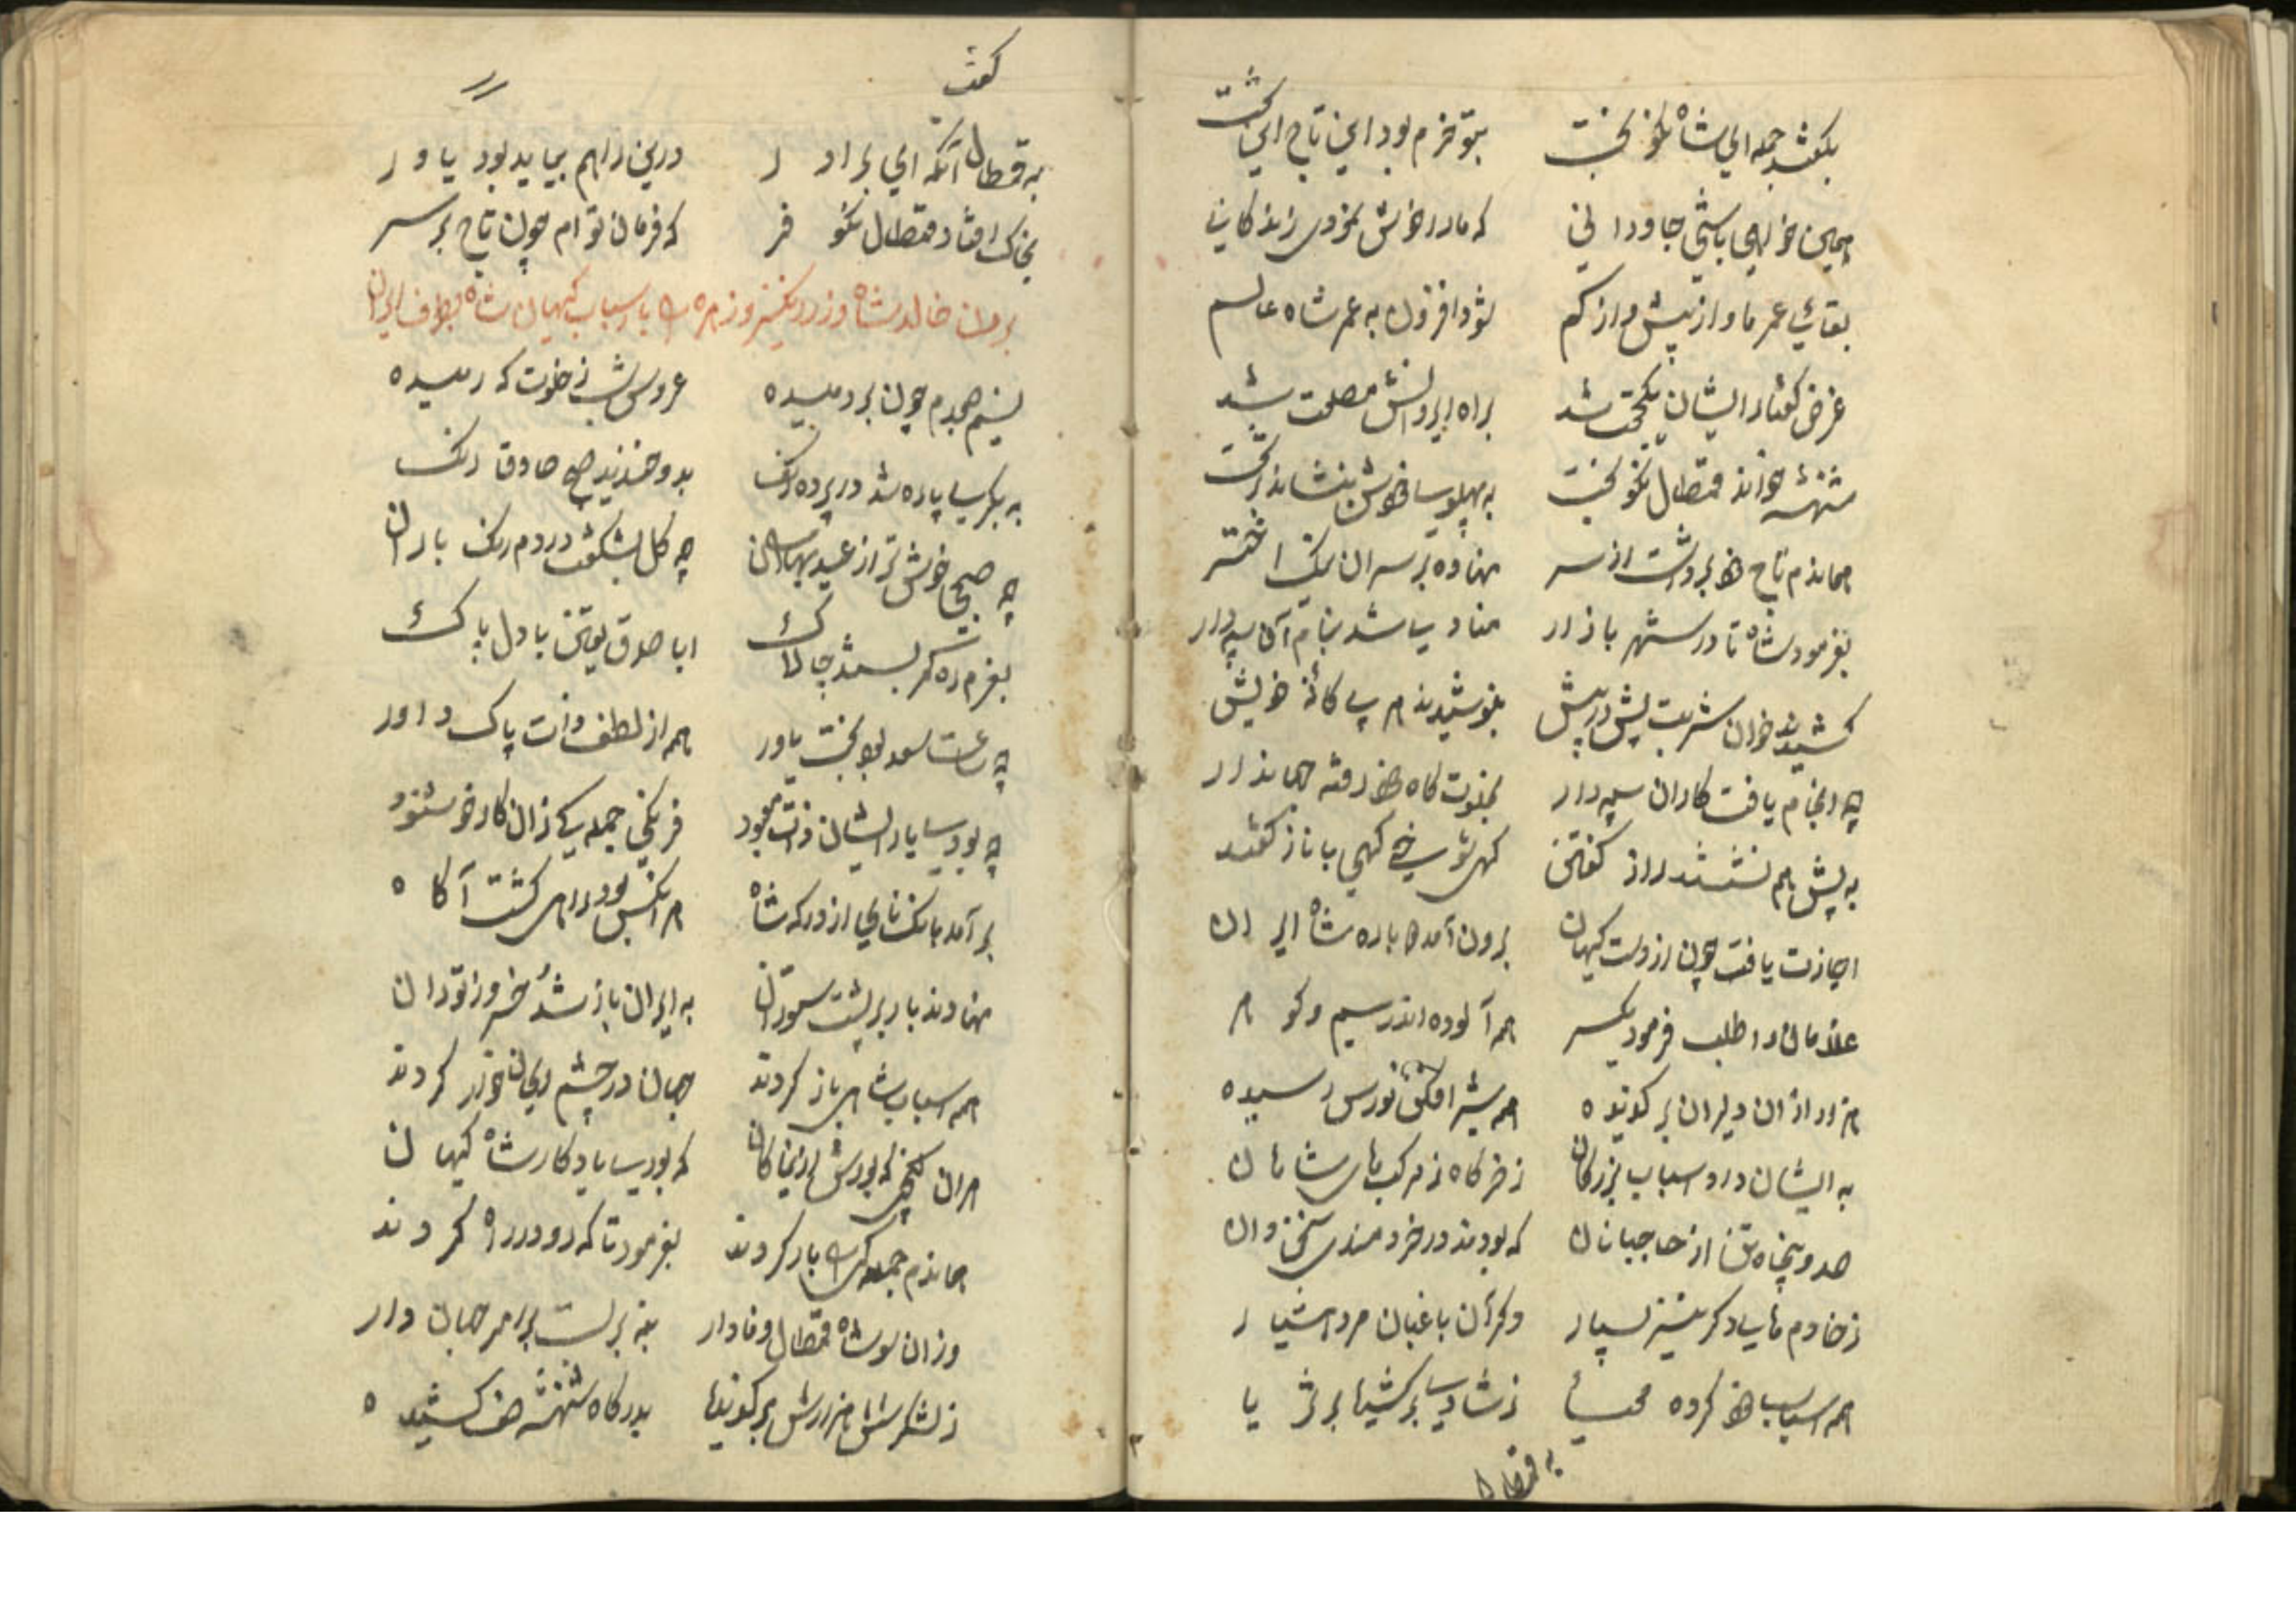 بگفتند جمله ای شاه نکو بخت بتو خرم بود این تاج این تخت
همین خواهی باشی جاودانی که ما در خوش بخوری زندگانی
بقای عمر ما و از بیش و از کم شود افزون به عمر شاه عالم
غرض گفتار ایشان یکجهت شد براه ایروانش مصلحت شد
شهنشه خواند قمطال نکو بخت به پهلوی خودش بنشاند بر تخت
هماندم تاج خود برداشت از سر نهاده بر سر آن نیک اختر
بفرمود شاه تا در شهر بازار منادی شد بنام آن سپهدار
کشیدند خوان شربت پیش در پیش بنوشیدند هم بیگانه خویش
چه انجام یافت کار آن سپهدار بخلوت گاه خود رفته جهاندار
به پیش هم نشستند راز گفتن گهی شوخی گهی با ناز گفتند
اجازت یافت چون از دست کیهان برون آمد دوباره شاه ایران
غلامان را طلب فرمود یکسر همه آلوده اندر سیم و گوهر
هزار از آن دلیران برگزیده همه شیر افکن نورس رسیده
به ایشان داد اسباب بزرگان ز خرگاه ز مرکبهای شاهان
صد و پنجاه تن از حاجبانان که بودند در خردمندی سخندان
ز خادم های دگر نیز بسیار دگر آن باغبان مرد هشیار
همه اسباب خود کرده مهیا ز شادی برکشید بر ثریا
به قمطال
گفت
به قمطال آنگه ای برادر درین راهم بیاید بود یاور
بخاک افتاد قمطال نکو فر که فرمان توام چون تاج بر سر
نسیم صبحدم چون بر دمیده عروس شب ز خلوتگه رمیده
به یکپاره شد در پرده رنگ بدو خندید صبح صادق رنگ
چه صبحی خوشتر از عید بهاران چه گل بشکفت در دم رنگ باران
بعزم ره کمر بستند چالاک ابا صدق یقین با دل پاک
چه ساعت سعد بود بخت یاور همه از لطف ذات پاک داور
چه بودی یار ایشان ذات معبود فرنگی جمله یی زان کار خوشنود
بر آمد بانگ نای از درگه شاه هر آنکس بود راهی گشت آگاه
نهادند بار بر پشت ستوران به ایران باز شد خسرو ز توران
همه اسباب شاهی باز کردند جهان در چشم بدان خوار کردند
هر آن گنجی که بودش از نیاکان که بودی یادگار شاه کیهان
هماندم جملگی را بار کردند بفرمود تا که رو در راه کردند
وزان سو شاه قمطال وفادار بنه بر بست برامر جهاندار
ز لشکر شش هزارش برگزیده بدرگاه شهنشه صف کشیده